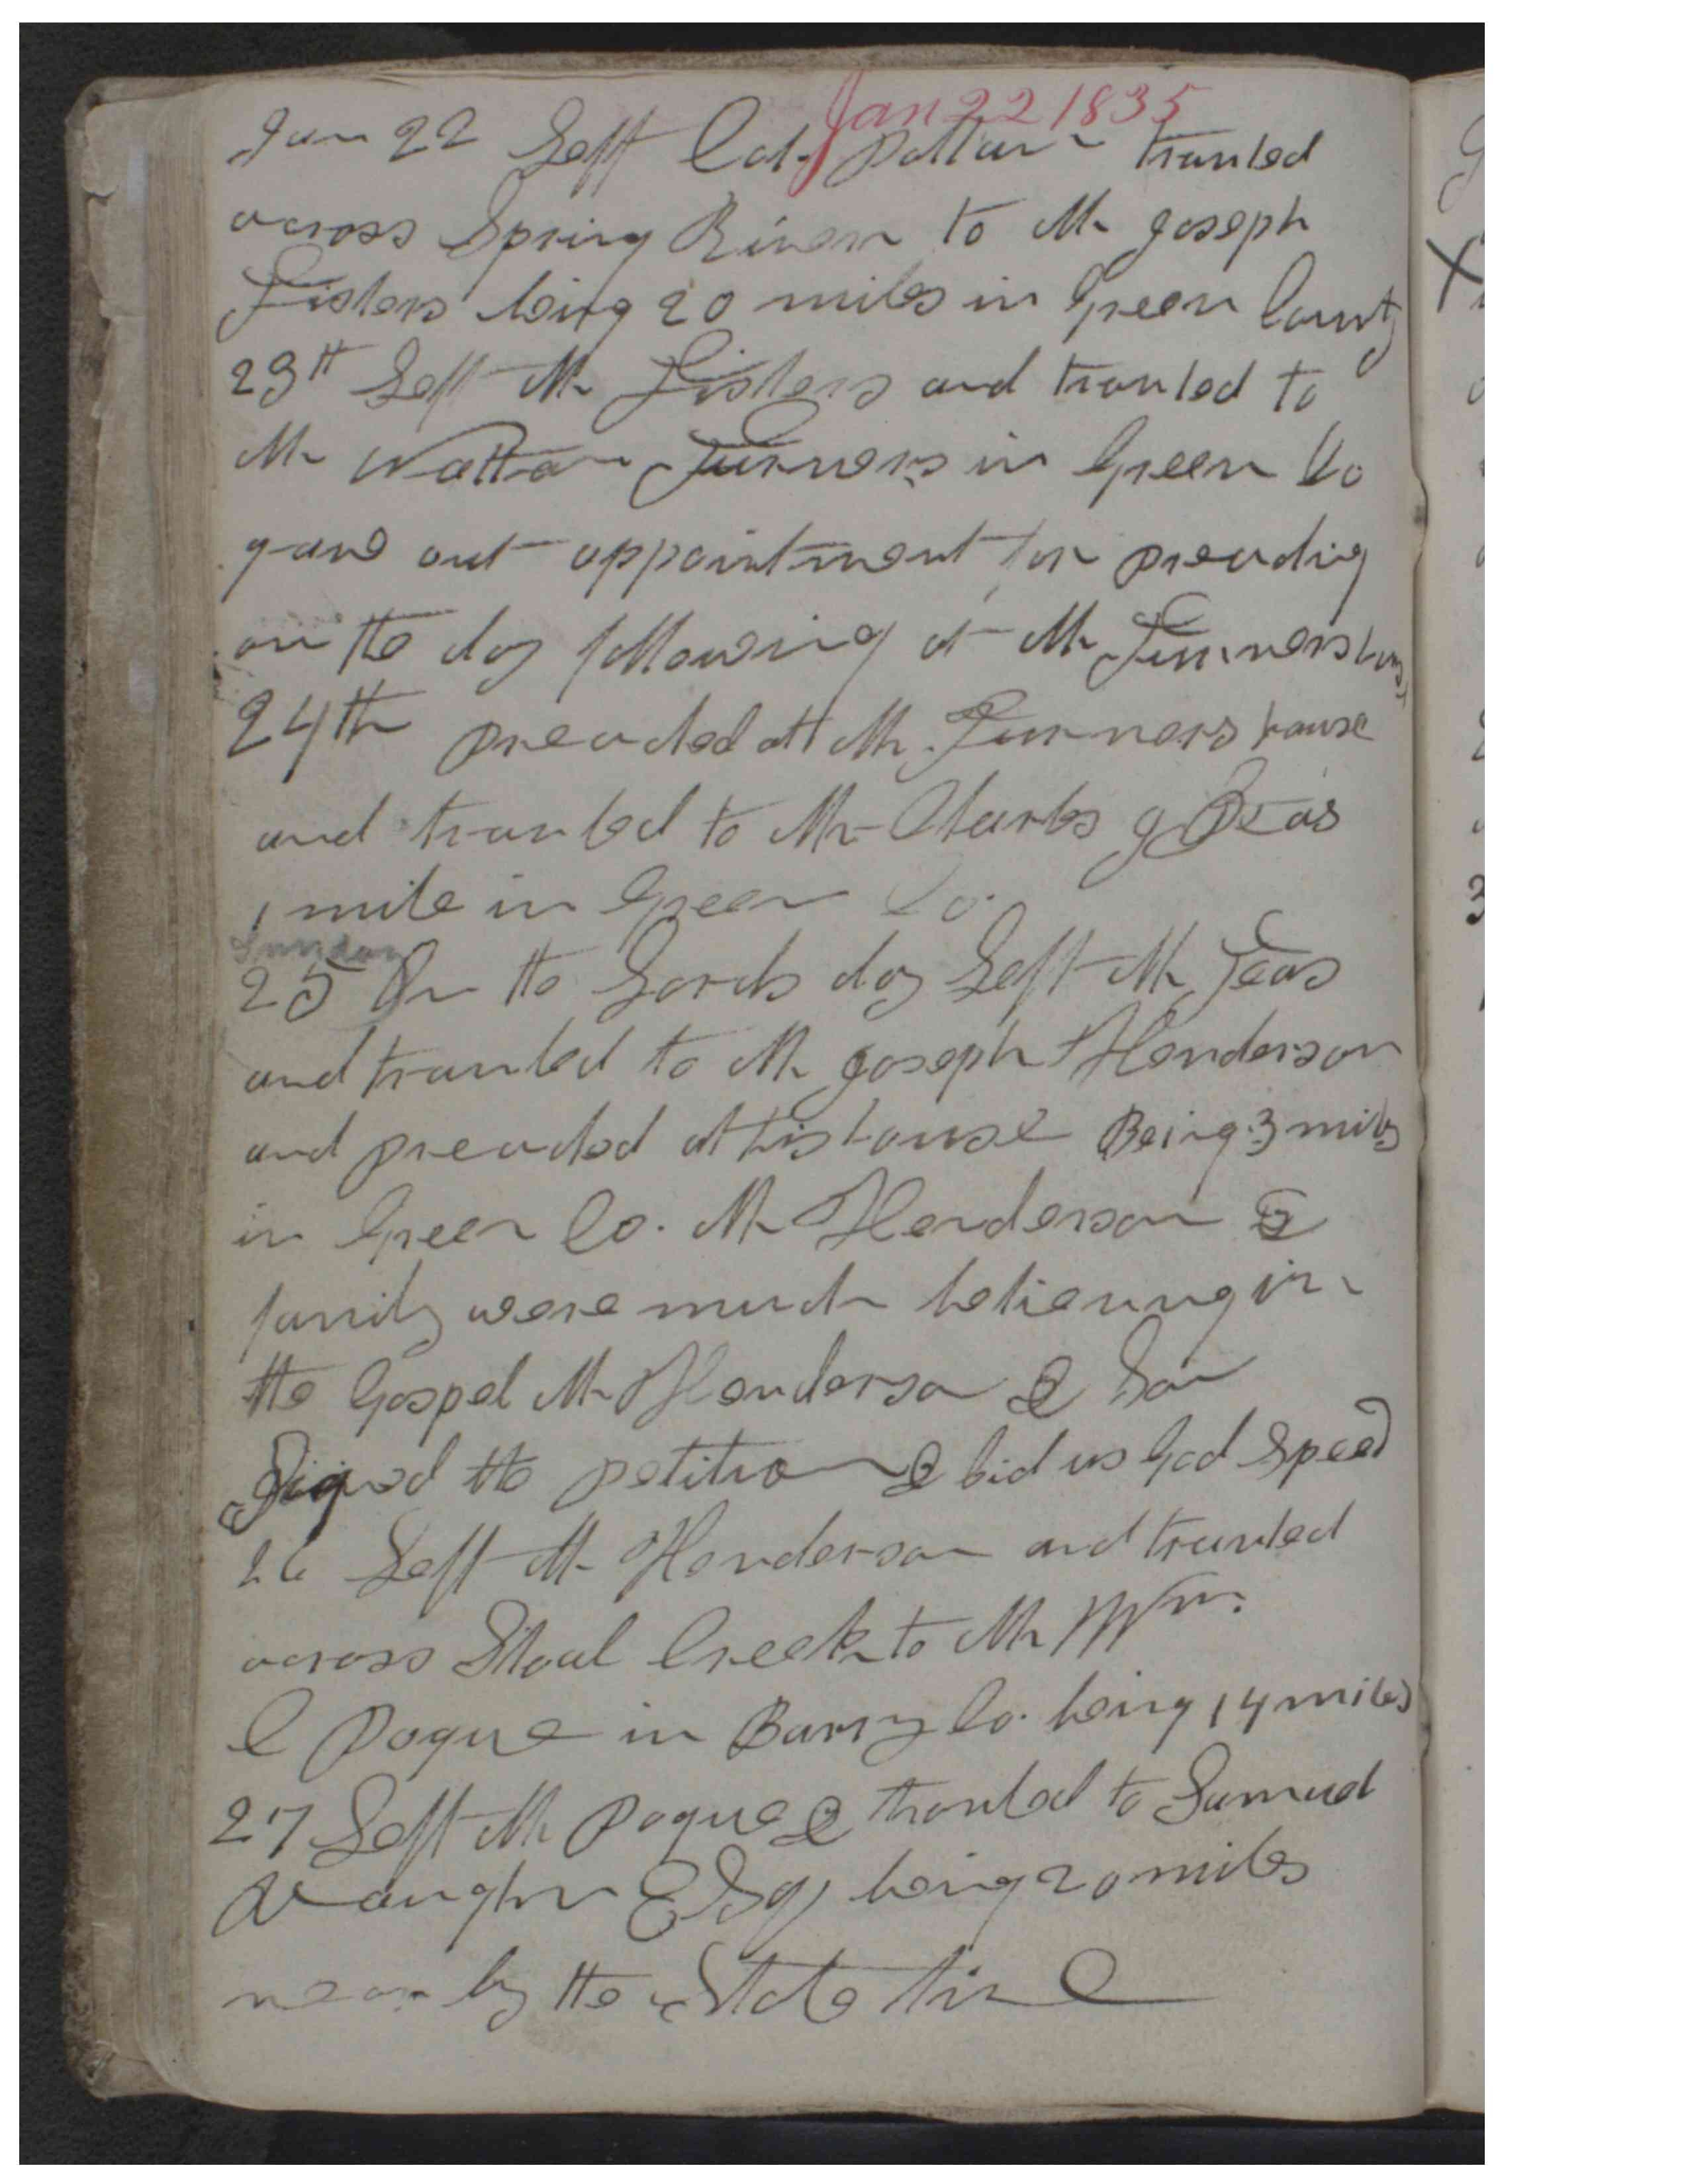 Jan 22 1835
Jan 22 Left Col. Pattan traveled
across Spring River to Mr Joseph
Fishers being 20 miles in Green County
23th Left Mr Fishers and traveled to
Mr Watton Turners in Green Co
gave out appointment for preaching
on the day following at Mr Turners hous
24th preached at Mr. Turners house
and traveled to Mr Charles g
1 mile in Green Co.
Sunday
25 On the Lords day Left Mr Teas
and traveled to Mr Joseph Henderson
and preached at his house Being 3 miles
in Green Co. Mr Henderson &
family were much believeing in
the Gospel Mr Henderson & Son
Signed the petition & bid us God Speed
26 Left Mr Henderson and traveled
across Shoal Creek to Mr Wm.
C Pogue in Barry Co. being 14 miles
27 Left Mr Pogue & traveled to Samuel
Vaughn Esq, being 20 miles
near by the State line